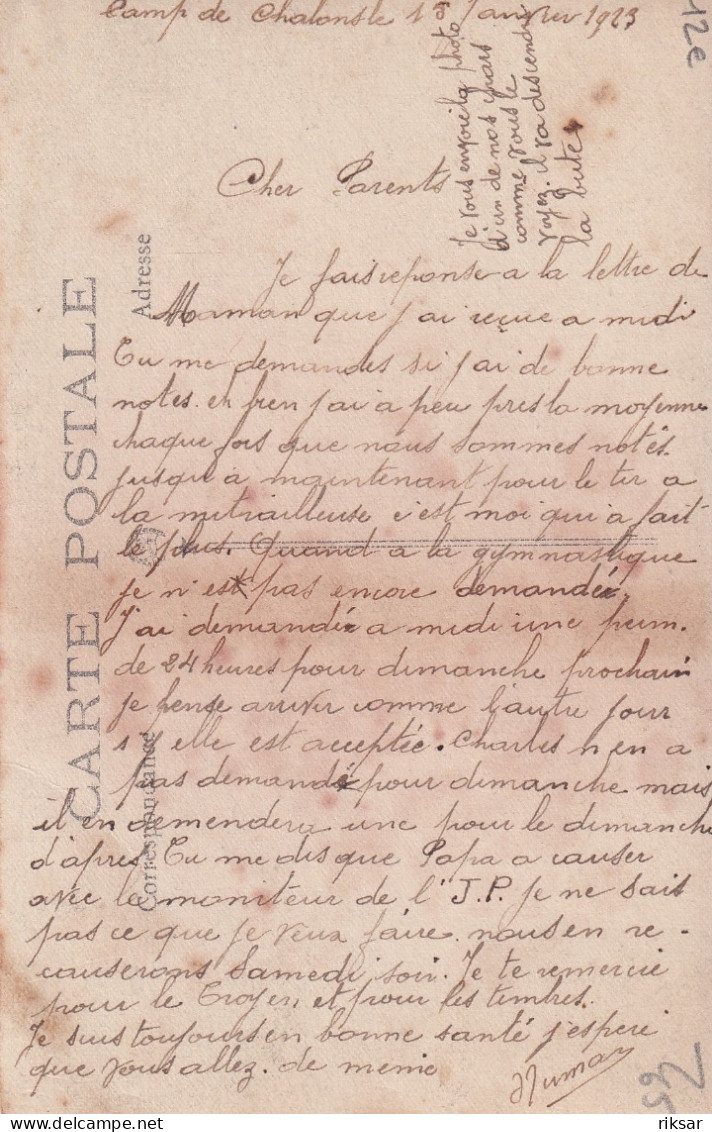 Camp de Chalons le 18 Janvier 1923
12e
Je vous envoie la photo
d'un de nos chars
comme vous le
voyez. il va descendre
la bute
Cher Parents
Je fais reponse a la lettre de
Maman que j'ai reçue a midi
Tu me demandes si j'ai de bonne
notes. eh bien j'ai a peu pres la moyenne
chaque fois que nous sommes notés.
jusqu'a maintenant pour le tir a
la mitrailleuse c'est moi qui a fait
le plus. Quand a la gymnastique
je n'est pas encore demandé.
J'ai demandé a midi une perm.
de 24 heures pour dimanche prochain
je pense arriver comme l'autre jour
s'y elle est acceptée. Charles n'en a
pas demandé pour dimanche mais
il en demendera une pour le dimanche
d'après. Tu me dis que Papa a causer
avec le moniteur de l'J.P. Je ne sait
pas ce que je veux faire. nous en re-
causerons Samedi soir. Je te remercie
pour le Troyen et pour les timbres.
Je suis toujours en bonne santé j'espere
que vous allez. de meme
CARTE POSTALE
Correspondance
Adresse
riksar